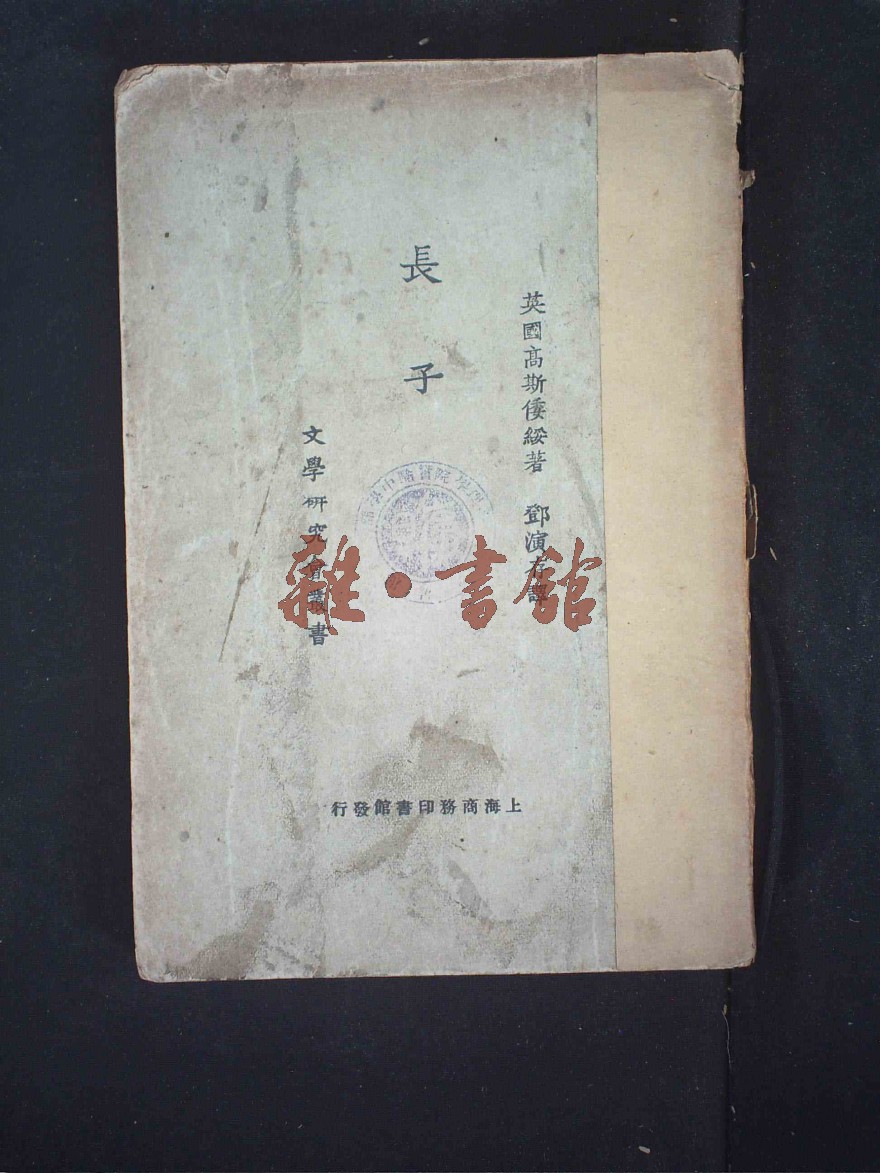 英國高斯倭綏著　鄧演存譯
長子
文學研究會叢書
上海商務印書館發行
雜·書館